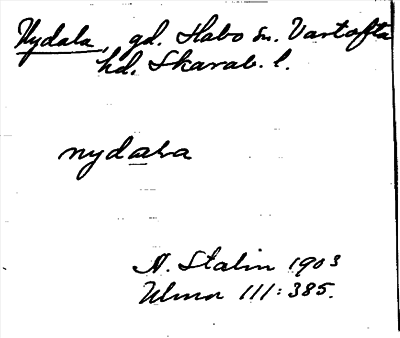 Nydala, gd. Habo sn. Vartofta
hd. Skarab. l.
nydala
N. Stalin 1903
Ulma 111:385.